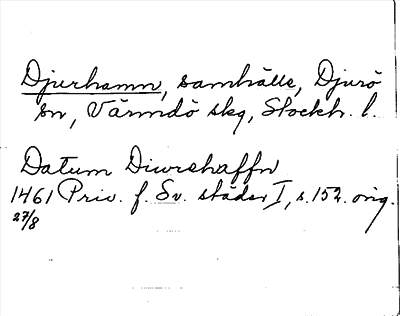 Djurhamn, samhälle, Djurö
sn, Värmdö skg, Stockh. l.
Datum Diwrshaffn
1461 Priv. f. Sv. städer I, s. 152. orig.
27/8